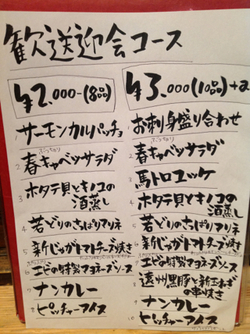 歓送迎会コース
¥2.000-(8品)
サーモンカルパッチョ
春キャベツサラダ
ホタテ貝とキノコの
酒蒸し
若どりのさっぱりマリネ
新じゃがトマトチーズ焼き
エビの特製マヨネーズソース
ナンカレー
ピッチャーアイス
¥3.000(10品)+a
お刺身盛り合わせ
春キャベツサラダ
馬トロユッケ
ホタテ貝とキノコの
酒蒸し
若どりのさっぱりマリネ
新じゃがトマトチーズ焼き
エビの特製マヨネーズソース
遠州黒豚と新玉ねぎ
の串焼き
ナンカレー
ピッチャーアイス